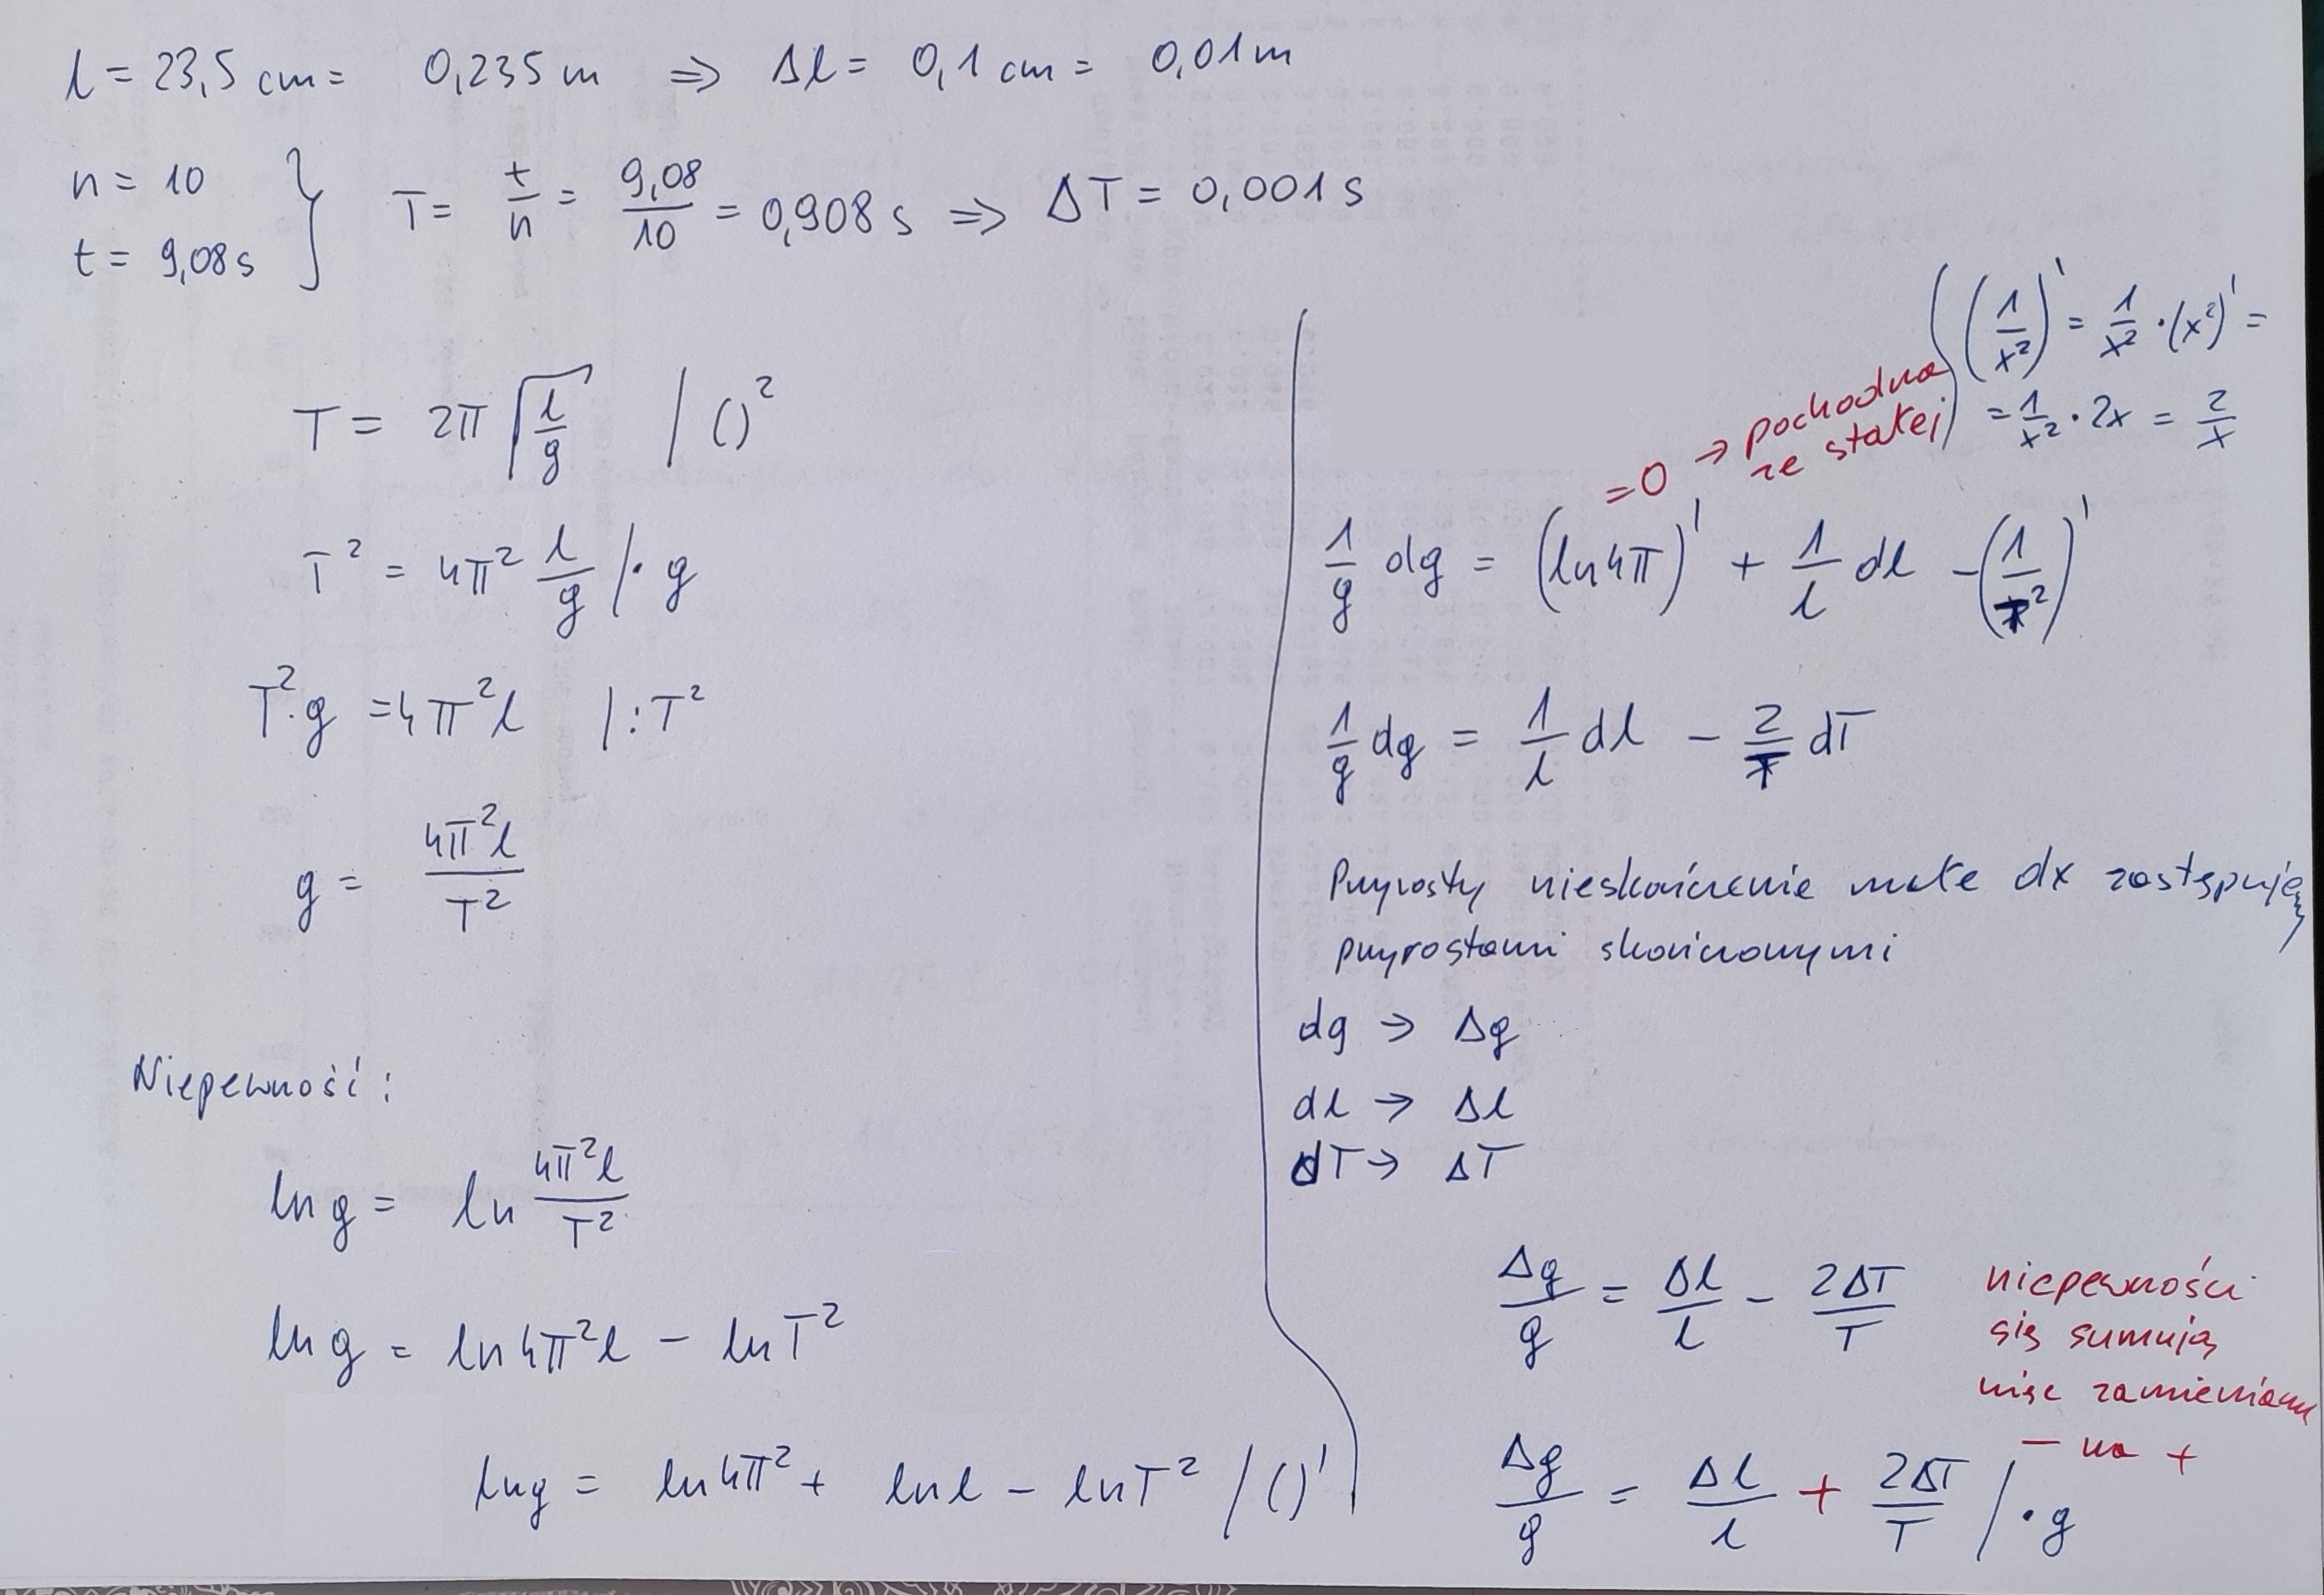 l = 23,5 cm = 0,235 m ⇒ Δl = 0,1 cm = 0,01 m
n = 10
t = 9,08 s
} T = t/n = 9,08/10 = 0,908 s ⇒ ΔT = 0,001 s
T = 2π √(l/g) / ()²
T² = 4π² l/g / · g
T² · g = 4π² l / : T²
g = 4π² l / T²
Niepewność :
ln g = ln 4π² l / T²
ln g = ln 4π² l − ln T²
ln g = ln 4π² + ln l − ln T² / ()'
( (1/x²)' = 1/x² · (x²)' =
= 1/x² · 2x = 2/x
= 0 → pochodna
ze stałej )
1/g dg = (ln 4π)' + 1/l dl − (1/T²)'
1/g dg = 1/l dl − 2/T dT
Przyrosty nieskończenie małe dx zastępuję
przyrostami skończonymi
dg → Δg
dl → Δl
dT → ΔT
Δg/g = Δl/l − 2ΔT/T
niepewności
się sumują
więc zamieniamy
− na +
Δg/g = Δl/l + 2ΔT/T / · g